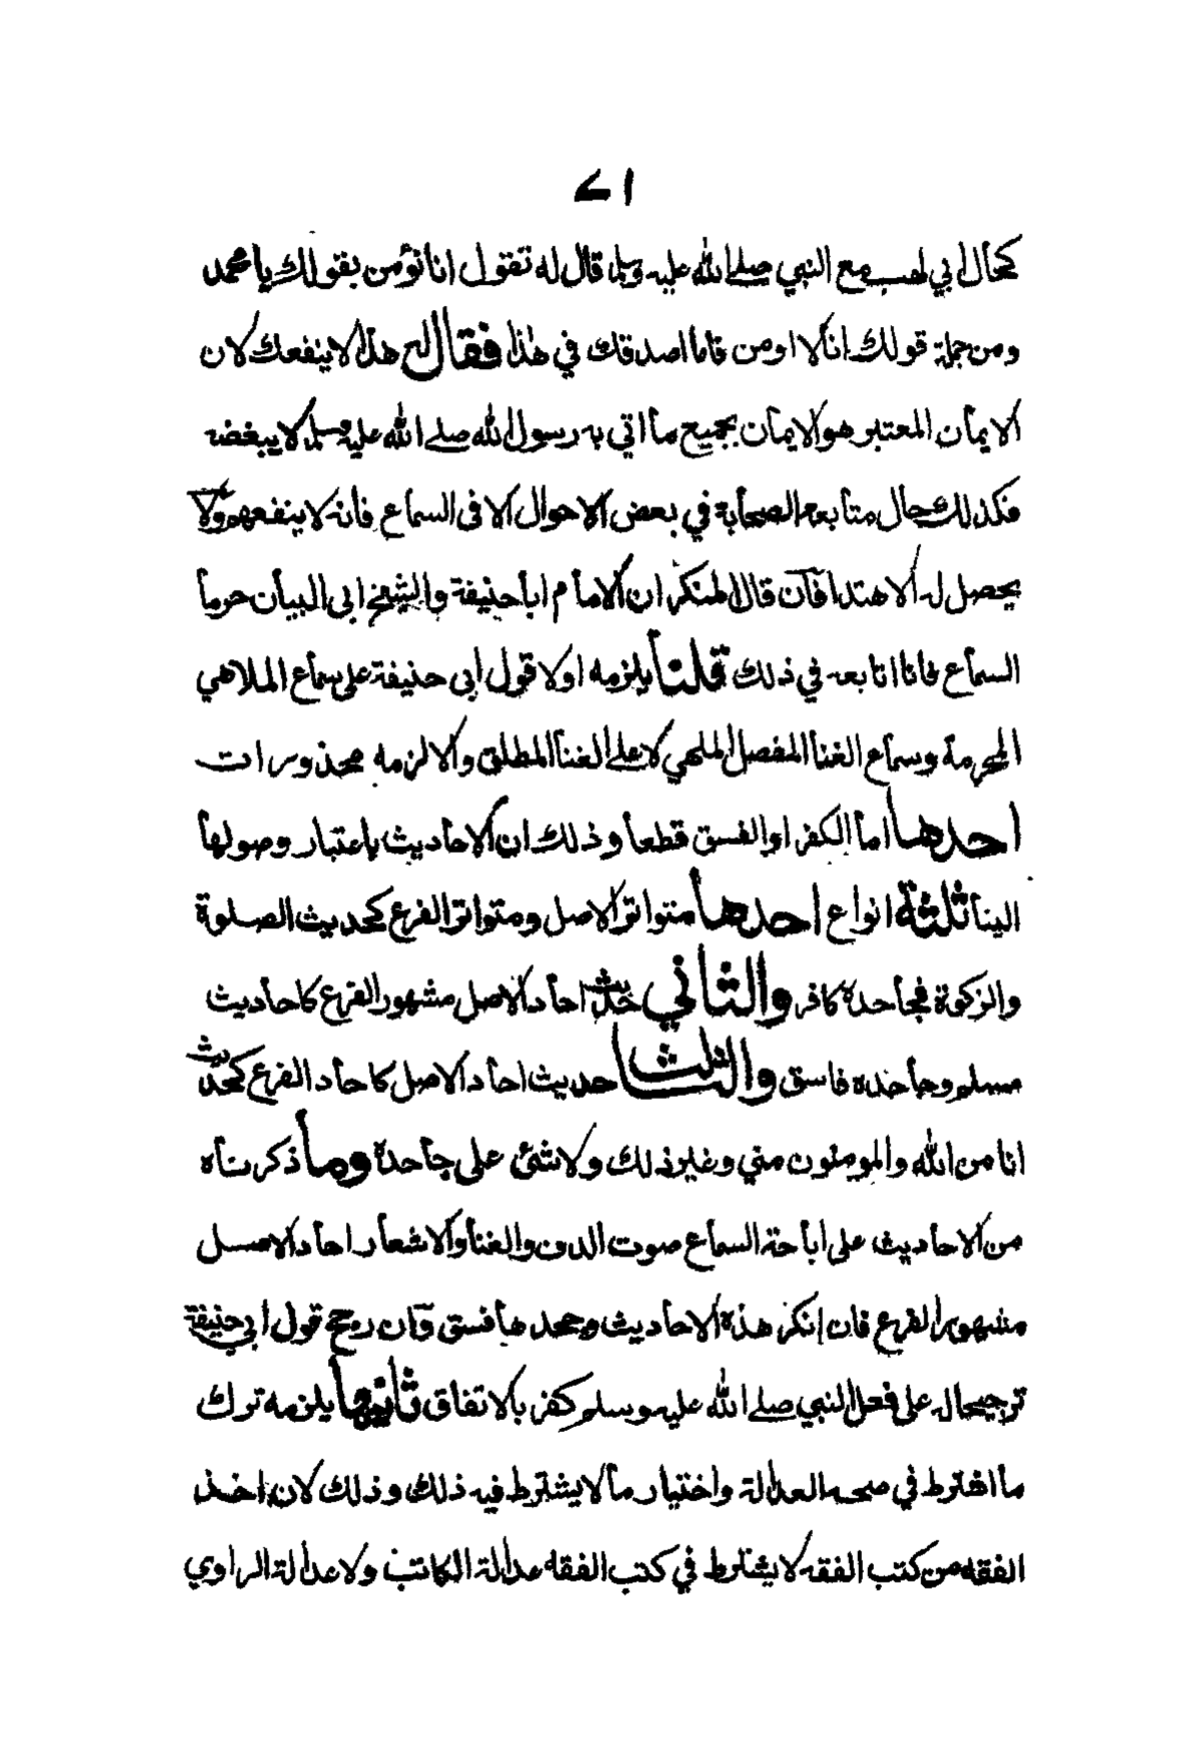 ٢١
كحال ابي لهب مع النبي صلے الله عليه وسلم قال له تقول انا نؤمن بقولك يا محمد
ومن جملة قولك انا لا اومن فانا اصدقك في هذا فقال له هذا لا ينفعك لان
الايمان المعتبر هو الايمان بجميع ما اتي به رسول الله صلے الله عليه وسلم لا ببعضه
فكذلك حال متابعة الصحابة في بعض الاحوال الا فى السماع فانه لا ينفعهم ولا
يحصل له الاهتدا فآن قال المنكر ان الامام ابا حنيفة والشيخ ابى البيان حرما
السماع فانا اتابعه في ذلك قلنا يلزمه اولا قول ابى حنيفة على سماع الملاهي
المحرمة وسماع الغنا المفصل الملهي لا على الغنا المطلق والا لزمه محذورات
احدها اما الكفر او الفسق قطعا وذلك ان الاحاديث باعتبار وصولها
الينا ثلثة انواع احدها متواتر الاصل ومتواتر الفرع كحديث الصلوة
والزكوة فجاحده كافر والثاني حديث احاد الاصل مشهور الفرع كاحاديث
مسلم وجاحده فاسق والثالث حديث احاد الاصل كاحاد الفرع كحديث
انا من الله والمومنون مني وغير ذلك ولا شئ على جاحده وما ذكرناه
من الاحاديث على اباحة السماع صوت الدف والغنا والاشعار احاد الاصل
مشهور الفرع فان انكر هذه الاحاديث وجحدها فسق وآن رجح قول ابي حنيفة
ترجيحا له على فعل النبي صلے الله عليه وسلم كفر بالاتفاق ثانيها يلزمه ترك
ما اشترط في صحه العدالة واختيار ما لا يشترط فيه ذلك وذلك لان اخذ
الفقه من كتب الفقه لا يشترط في كتب الفقه عدالة الكاتب ولا عدالة الراوي